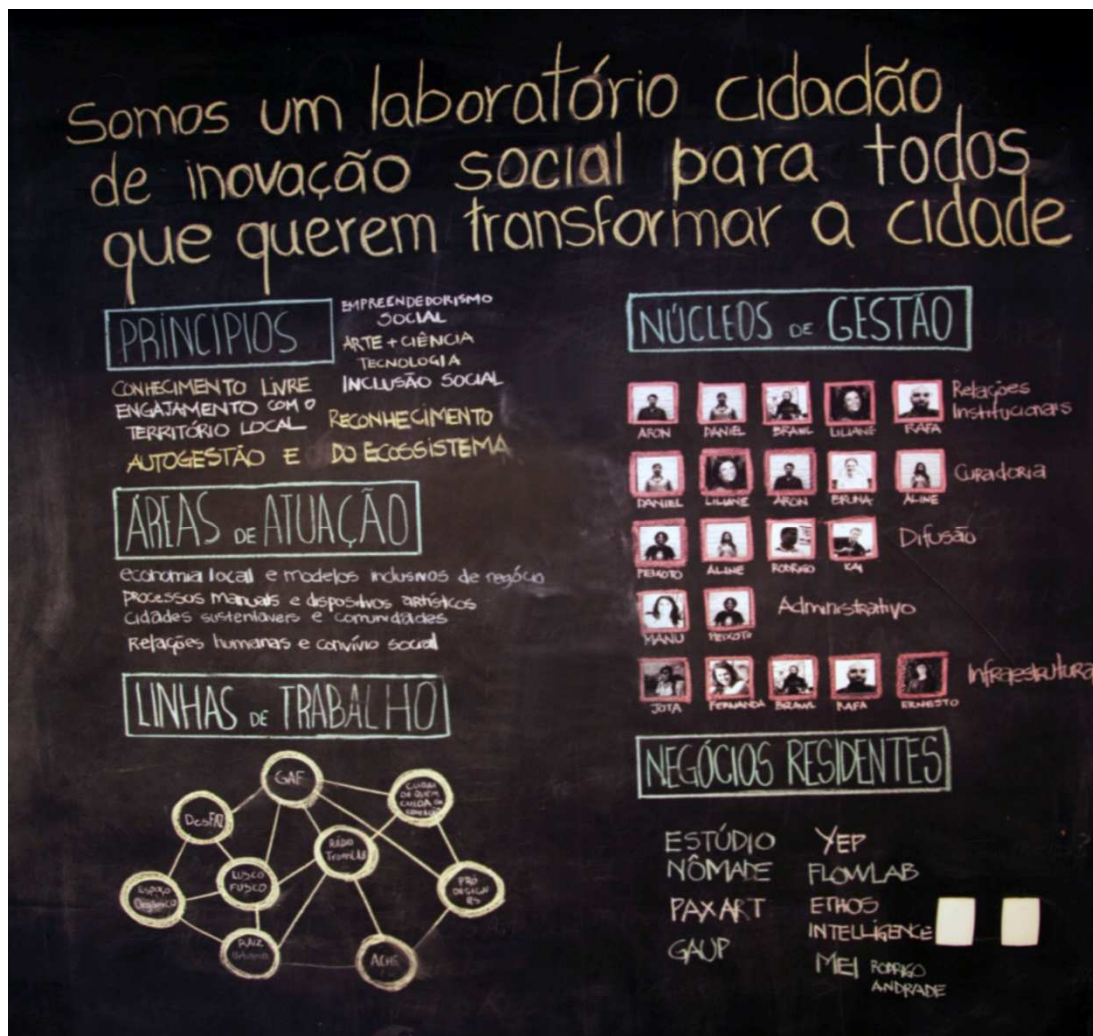 Somos um laboratório cidadão
de inovação social para todos
que querem transformar a cidade
PRINCÍPIOS
EMPREENDEDORISMO
SOCIAL
ARTE + CIÊNCIA
TECNOLOGIA
INCLUSÃO SOCIAL
CONHECIMENTO LIVRE
ENGAJAMENTO COM O
TERRITÓRIO LOCAL
AUTOGESTÃO E RECONHECIMENTO
DO ECOSSISTEMA
ÁREAS DE ATUAÇÃO
economia local e modelos inclusivos de negócio
processos manuais e dispositivos artísticos
cidades sustentáveis e comunidades
Relações humanas e convívio social
LINHAS DE TRABALHO
GAF
CUIDAR
DE QUEM
CUIDA
DesFAZ
RÁDIO
TransLAB
ESPAÇO
Orgânico
LUSCO
FUSCO
PRÓ
DESIGN
RS
RAIZ
Urbana
ACHE
NÚCLEOS DE GESTÃO
ARON DANIEL BRAWL LILIANE RAFA
Relações
Institucionais
DANIEL LILIANE ARON BRUNA ALINE
Curadoria
PEIXOTO ALINE RODRIGO KAJ
Difusão
MANU PEIXOTO
Administrativo
JOTA FERNANDA BRAWL RAFA ERNESTO
Infraestrutura
NEGÓCIOS RESIDENTES
ESTÚDIO
NÔMADE
PAXART
GAUP
YEP
FLOWLAB
ETHOS
INTELLIGENCE
MEI RODRIGO
ANDRADE